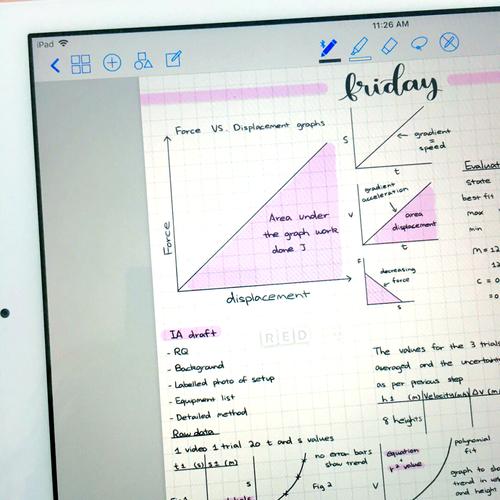 iPad
11:26 AM
friday
Force VS. Displacement graphs
Force
displacement
Area under
the graph work
done J
S
t
gradient
=
speed
gradient
acceleration
V
t
area
displacement
F
s
decreasing
force
Evaluat
state
best fit
max
min
m = 12
12
c = 0
= 0
IA draft
- RQ
- Background
- Labelled photo of setup
- Equipment list
- Detailed method
RED
Raw data
1 video 1 trial 20 t and s values
t1 (s) s1 (m)
S
no error bars
show trend
Fig 2
The values for the 3 trials
averaged and the uncertaint
as per previous step
h1 (m) Velocity(m/s) ΔV (m
8 heights
equation
+
r² value
V
polynomial
fit
graph to sho
trend in
and height